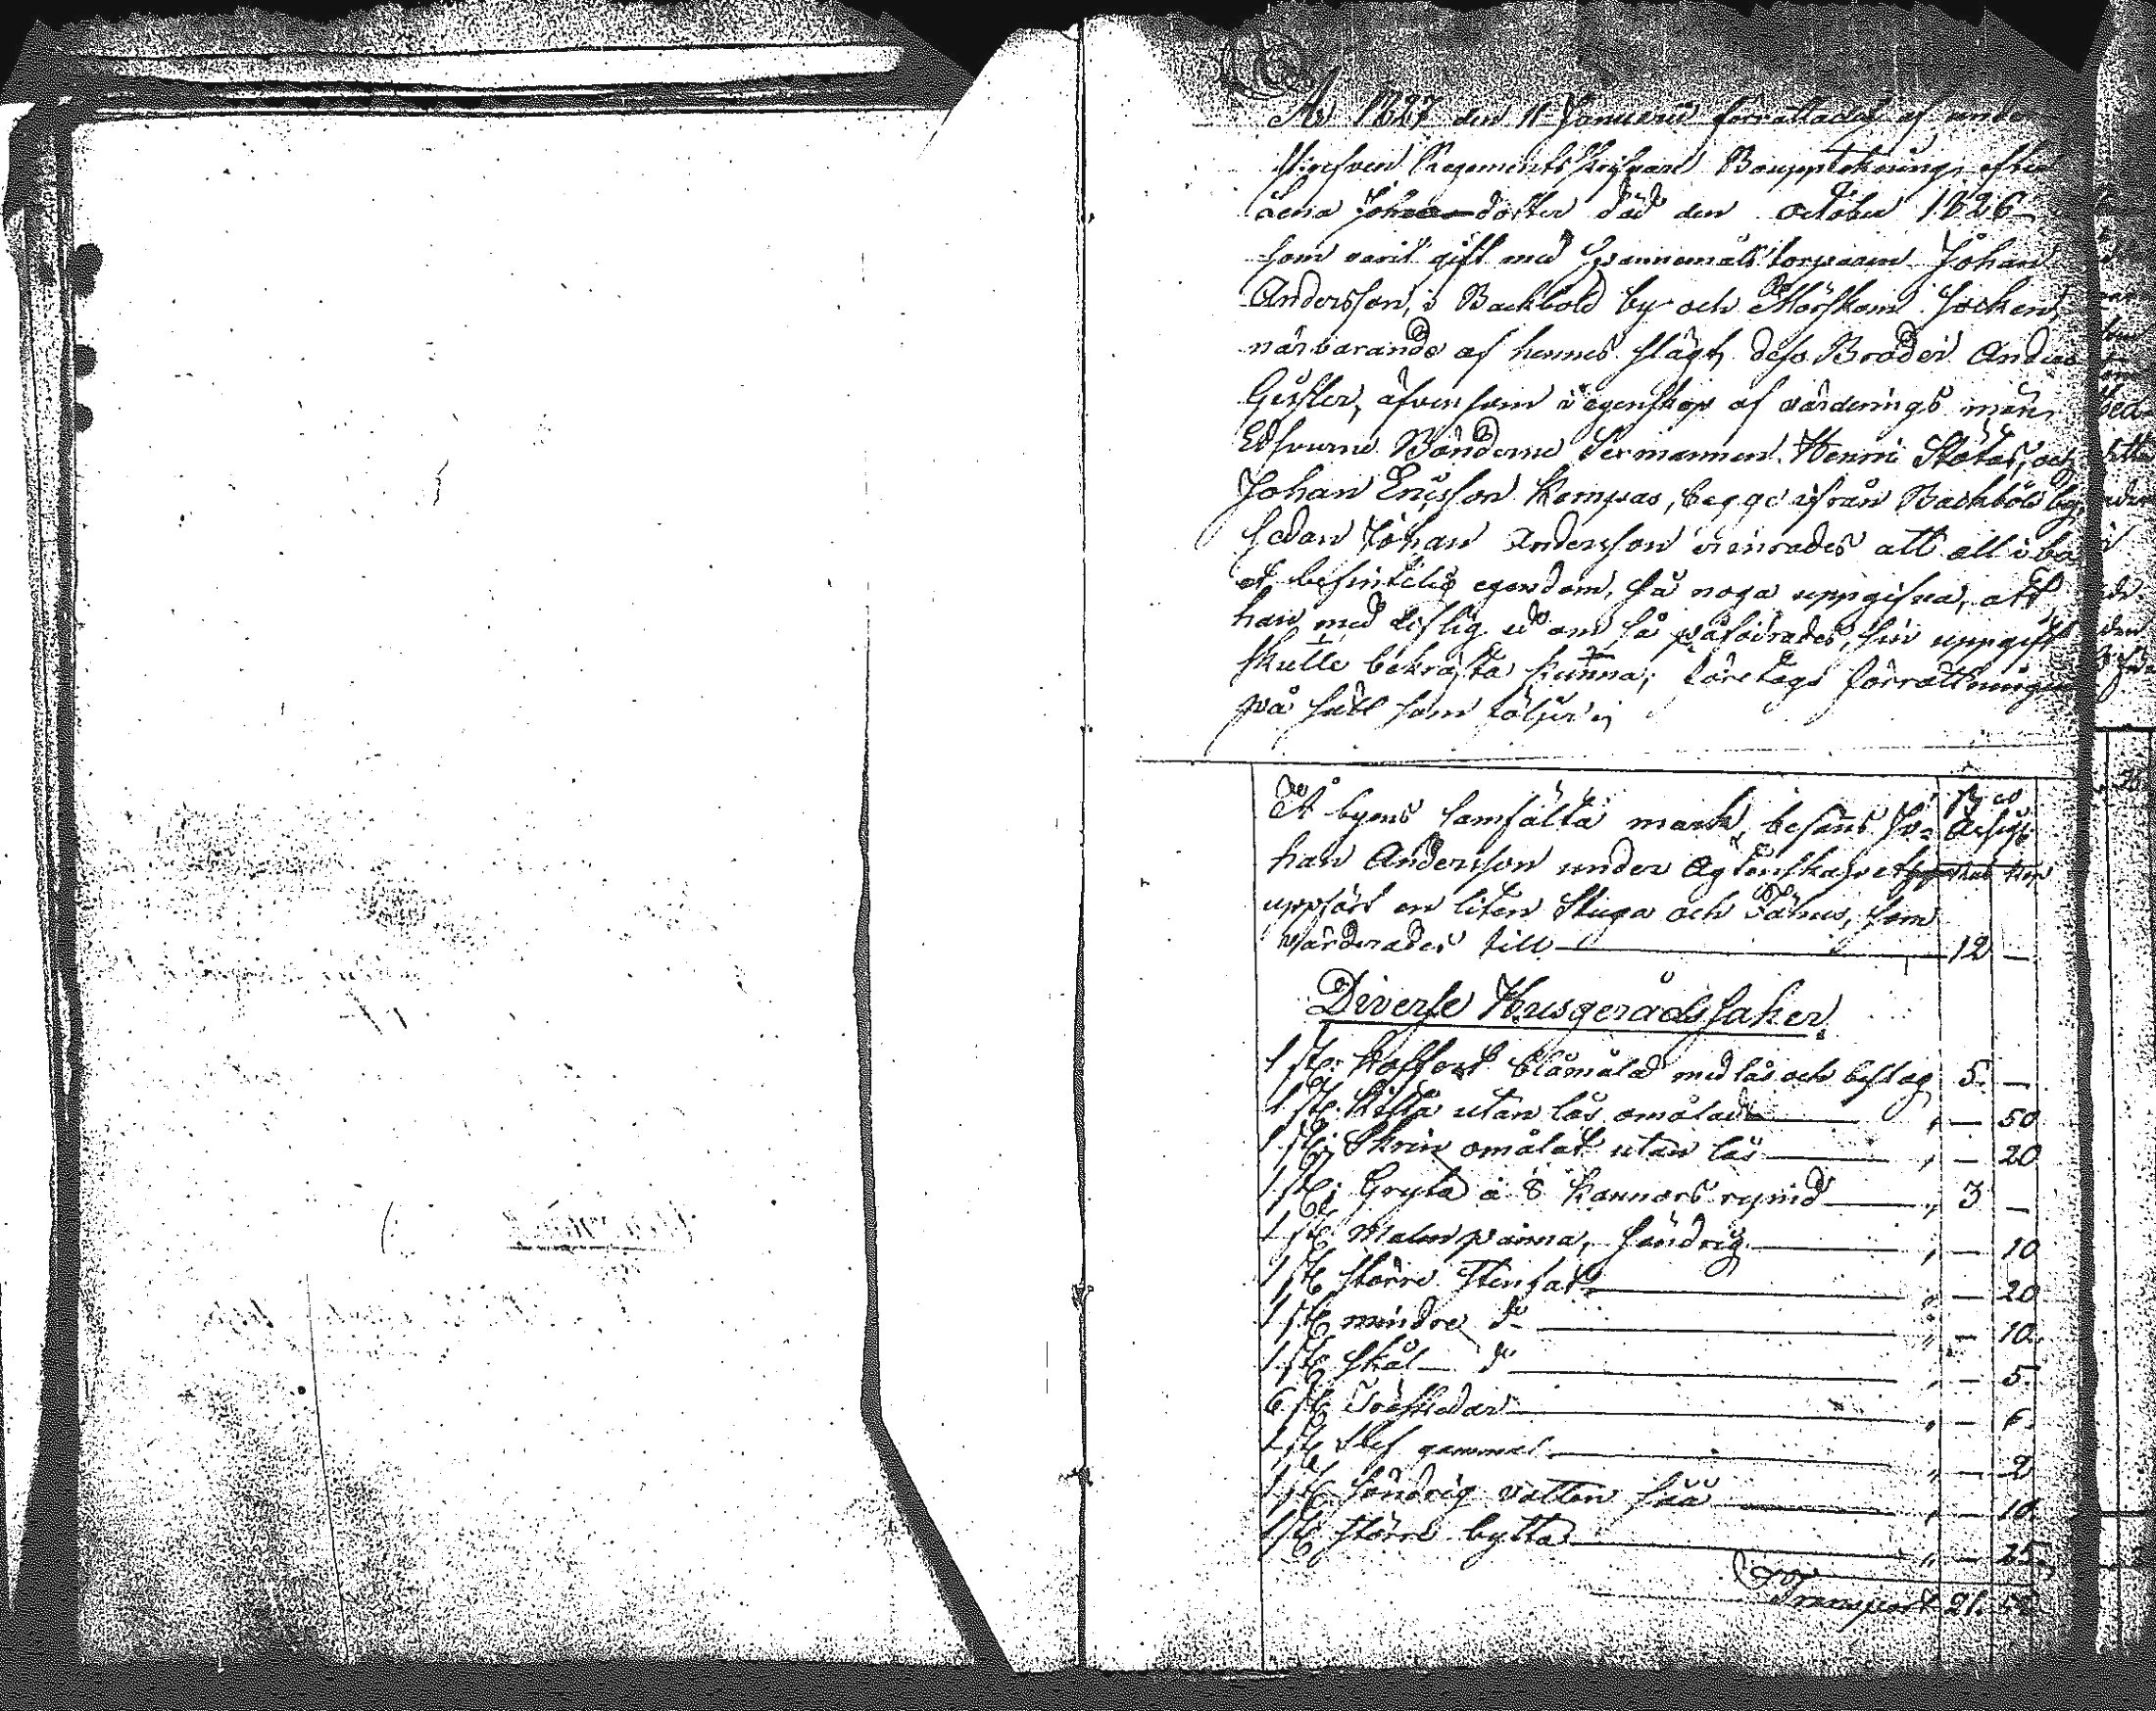 Av 1827 den 11 Januarii förrättades af under
skrefven Regements Skrifvare Bouppteckning efter
Lena Johansdotter död den October 1826
som varit gift med Spannemåls torparen Johan
Andersson, i Backböld by och Mörskom Socken,
närvarande af hennes slägt, dess Broder Anders
Geisler, äfvensom i egenskap af värderings män
Edsvurne Bönderne Sexmannen Henric Skotas, och
Johan Ericsson Kempas, begge ifrån Backböld by,
Sedan Johan Andersson erinrades att all i bo
et befintelig egendom, så noga uppgifva, att
han med liflig ed om så påfordrades, sin uppgift
skulle bekräfta kunna; företogs förrättningen
på sätt som följer;
På byens samfälta mark, befans Jo=
han Andersson under ägtenskapet
uppfört en liten Stuga och Fähus, som
värderades till 12 —
Diverse Husgerådssaker
1 st: Koffert blåmålad med lås och beslag 5. —
1 st: Kista utan lås omålad " — 50
1 st: Skrin omålat utan lås " — 20
1 st: Gryta à 8 kannors rymd " 3 —
1 st Malm panna, söndrig " — 10
1 st större Stenfat " — 20
1 st mindre do " — 10.
1 st skål do " — 5.
6 st Träskedar " — 6.
1 st Slef gammal " — 2
1 st söndrig vatten såå " — 10.
1 st större bytta " — 25.
Transport 21.